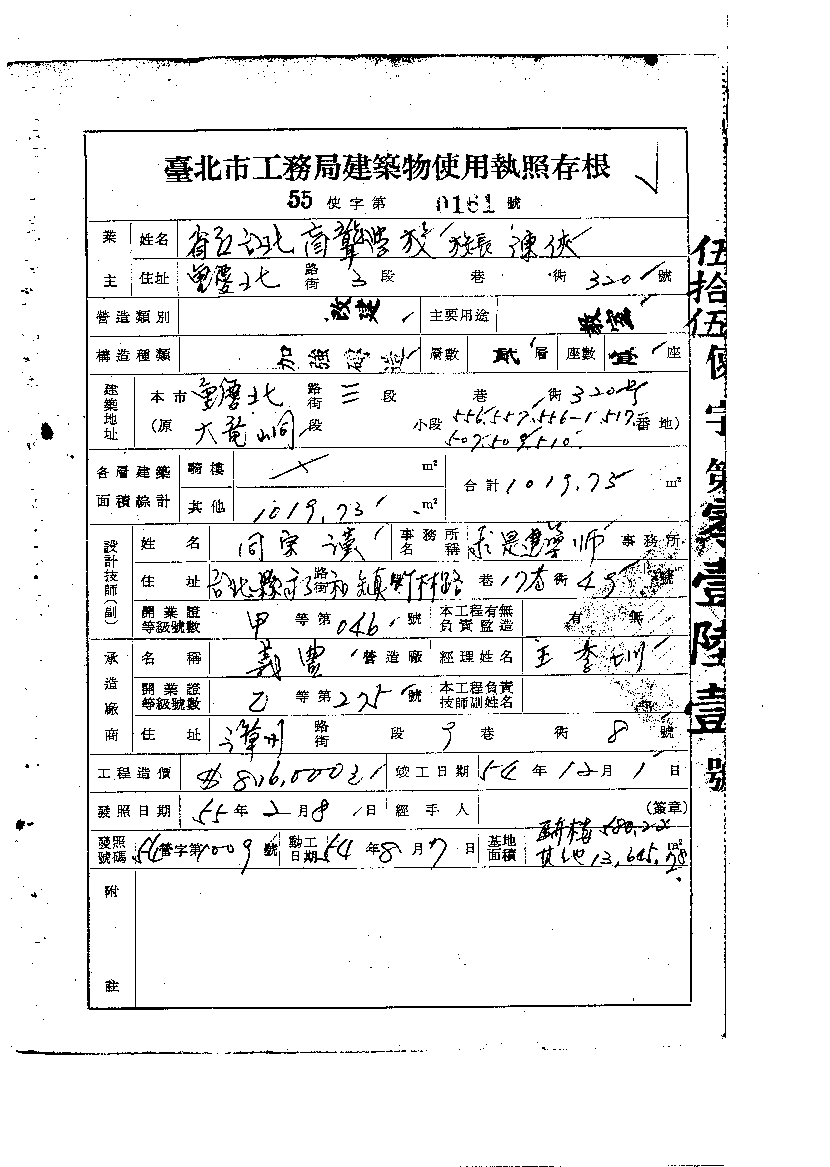 臺北市工務局建築物使用執照存根
55 使字第 0161 號
業主 姓名 省立台北盲聾學校 校長 陳俠
住址 重慶北 路街 3 段 巷 衖 320 號
營造類別 改建 主要用途 教室
構造種類 加強磚造 層數 貳 層 座數 壹 座
建築地址 本市 重慶北 路街 三 段 巷 衖 320號
(原 大龍峒 段 小段 556.557.556-1.517. 番地)
507.509.510.
各層建築面積綜計 騎樓 m² 合計 1019.73 m²
其他 1019.73 m²
設計技師(副) 姓名 事務所名稱 求是建築師 事務所
住址 台北縣永和鎮竹林路 路街 巷 17巷 衖 45 號
開業證等級號數 甲 等第 046 號 本工程有無負責監造 有 無
承造廠商 名稱 義豐 營造廠 經理姓名
開業證等級號數 乙 等第 275 號 本工程負責技師副姓名
住址 路街 段 9 巷 衖 8 號
工程造價 $ 816,000元 竣工日期 54 年 12 月 1 日
發照日期 55 年 2 月 8 日 經手人 (簽章)
發照號碼 54 營字第 1009 號 動工日期 54 年 8 月 7 日 基地面積 騎樓 580.22
其他 13,645.78 m²
附註
伍拾伍使字第 壹陸壹號